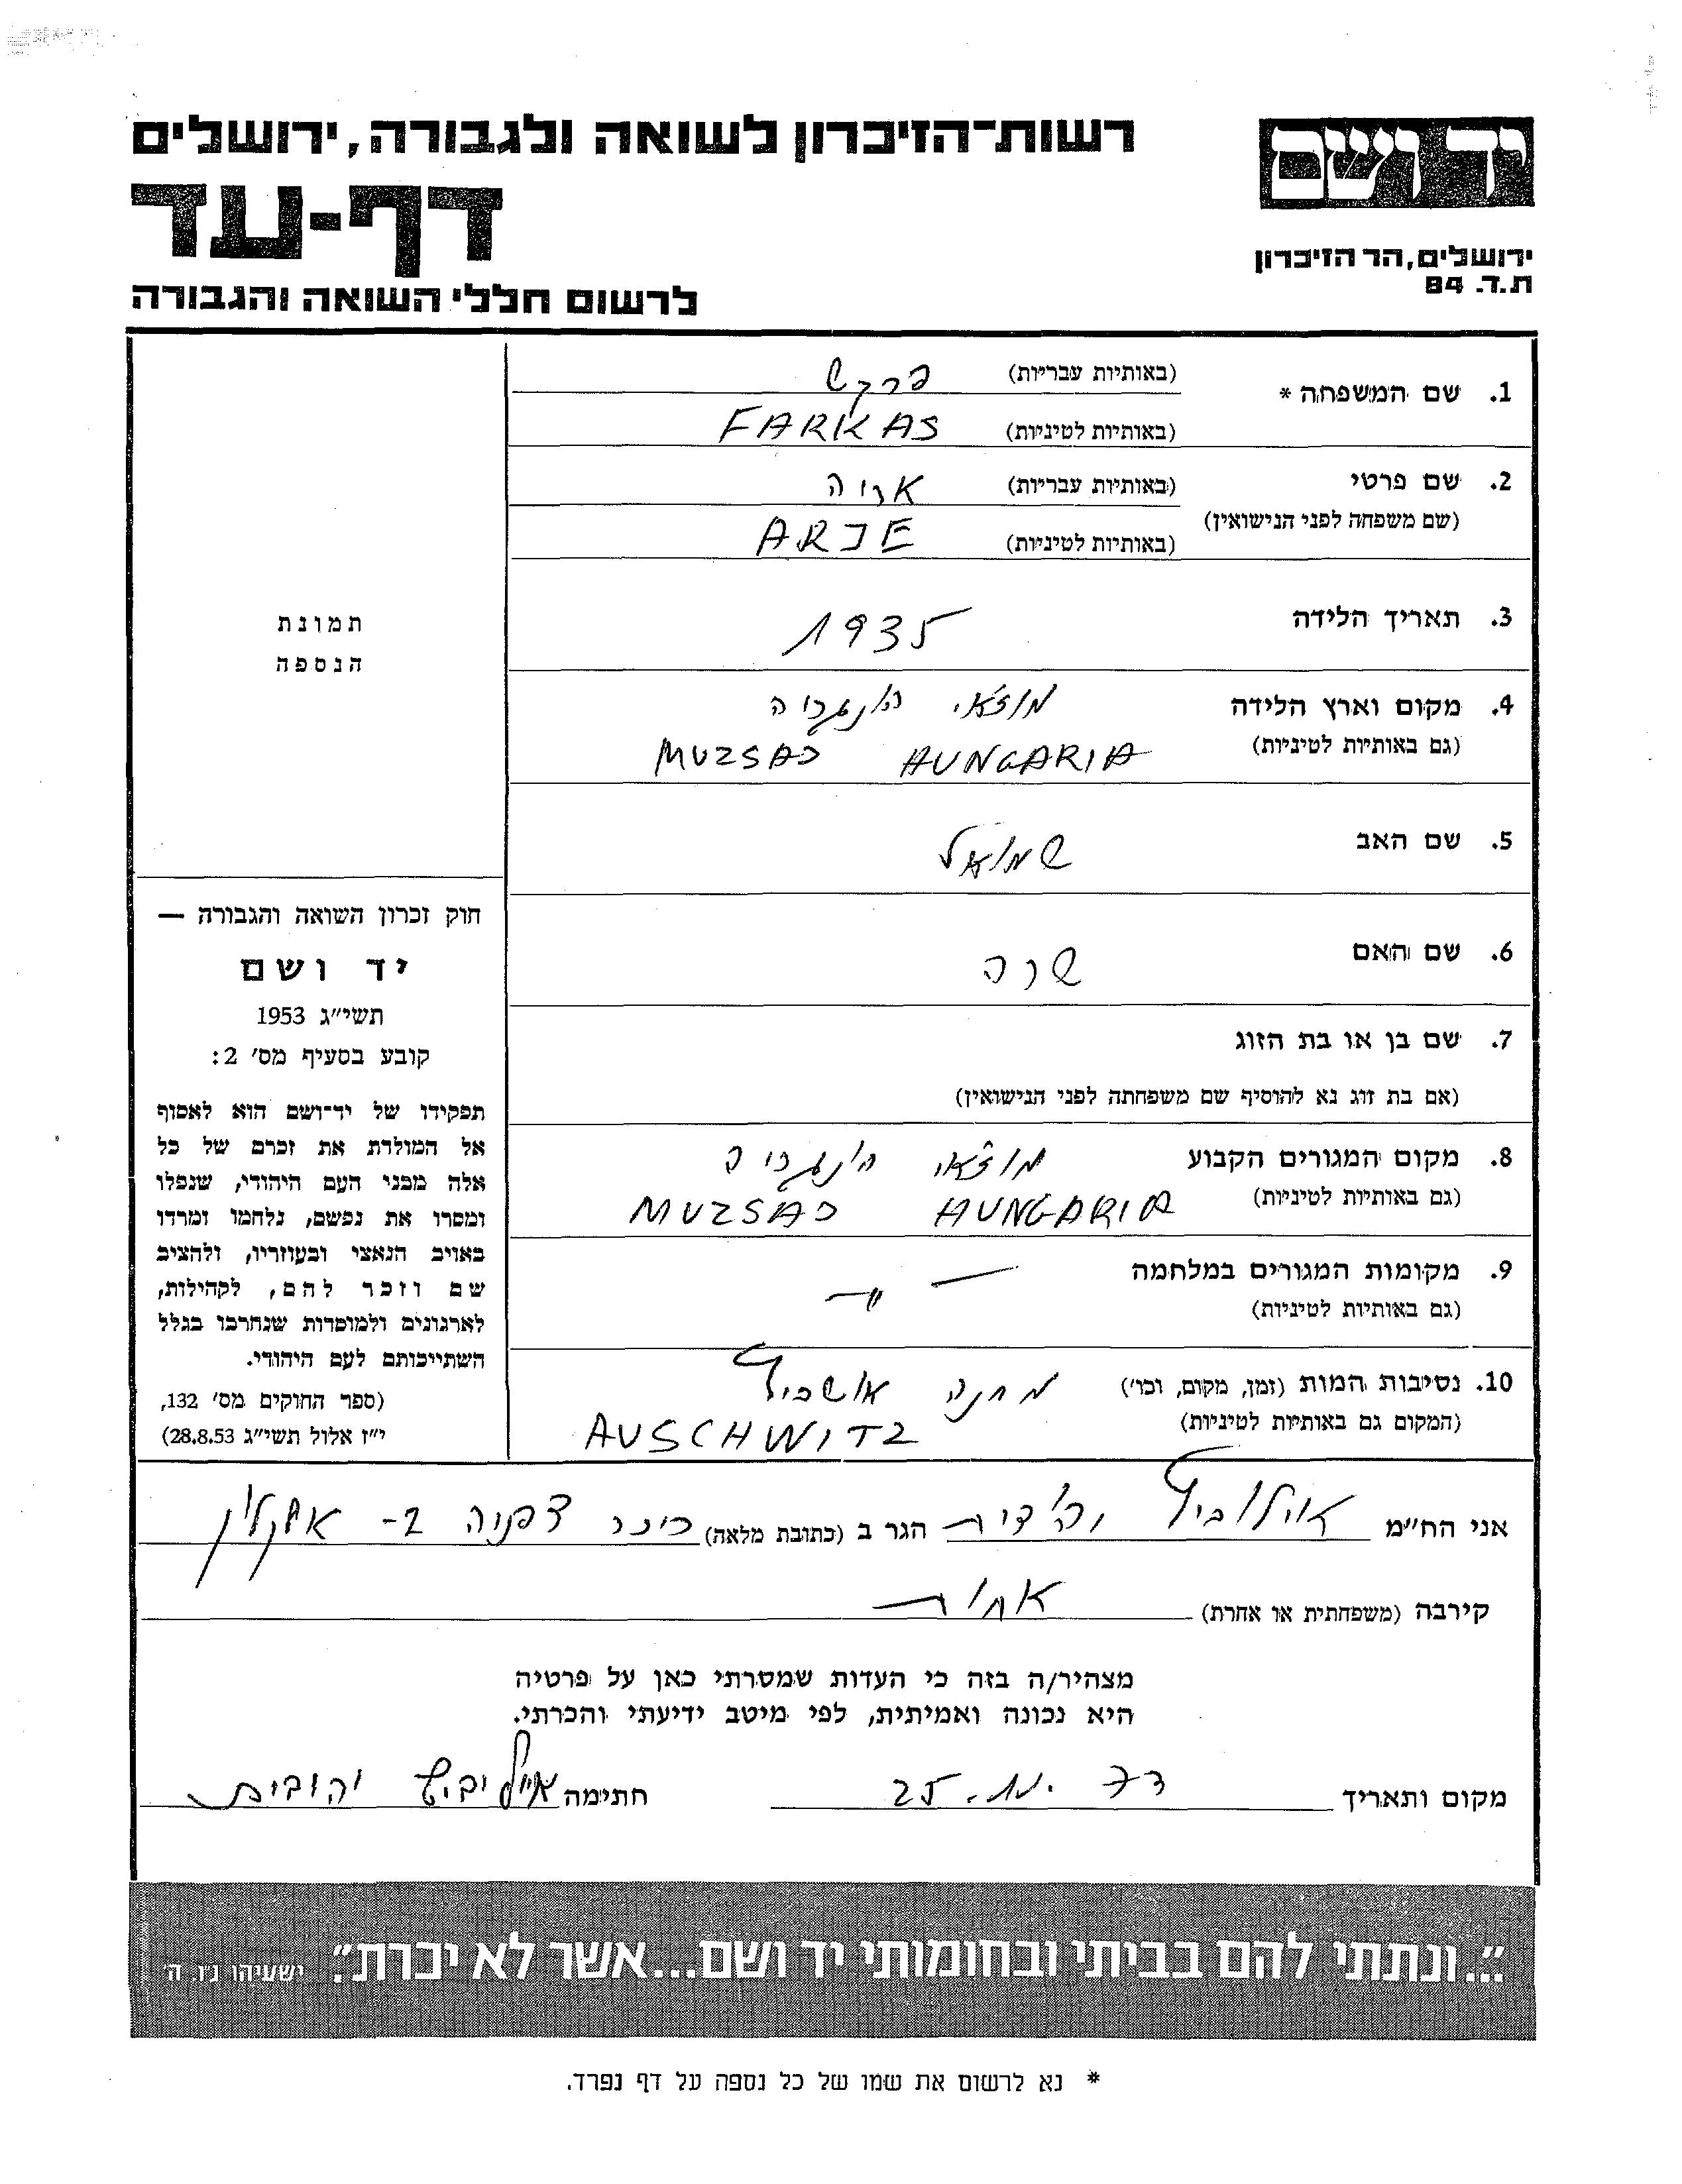 יד ושם
ירושלים, הר הזיכרון
ת.ד. 84
רשות-הזיכרון לשואה ולגבורה, ירושלים
דף-עד
לרשום חללי השואה והגבורה
1. שם המשפחה * (באותיות עבריות) פרקש
(באותיות לטיניות) FARKAS
2. שם פרטי (באותיות עבריות) אריה
(שם משפחה לפני הנישואין)
(באותיות לטיניות) ARJE
3. תאריך הלידה 1935
4. מקום וארץ הלידה הונגריה
(גם באותיות לטיניות) MUZSAJ HUNGARIA
5. שם האב שמואל
6. שם האם שרה
7. שם בן או בת הזוג
(אם בת זוג נא להוסיף שם משפחתה לפני הנישואין)
8. מקום המגורים הקבוע הונגריה
(גם באותיות לטיניות) MUZSAJ HUNGARIA
9. מקומות המגורים במלחמה — " —
(גם באותיות לטיניות)
10. נסיבות המות (זמן, מקום, וכו') מחנה אושביץ
(המקום גם באותיות לטיניות) AUSCHWITZ
תמונת
הנספה
חוק זכרון השואה והגבורה —
יד ושם
תשי״ג 1953
קובע בסעיף מס׳ 2:
תפקידו של יד-ושם הוא לאסוף
אל המולדת את זכרם של כל
אלה מבני העם היהודי, שנפלו
ומסרו את נפשם, נלחמו ומרדו
באויב הנאצי ובעוזריו, ולהציב
שם וזכר להם, לקהילות,
לארגונים ולמוסדות שנחרבו בגלל
השתייכותם לעם היהודי.
(ספר החוקים מס׳ 132,
י״ז אלול תשי״ג 28.8.53)
אני הח״מ הגר ב (כתובת מלאה) כיכר צפניה 2- אשקלון
קירבה (משפחתית או אחרת) אחות
מצהיר/ה בזה כי העדות שמסרתי כאן על פרטיה
היא נכונה ואמיתית, לפי מיטב ידיעתי והכרתי.
מקום ותאריך חתימה
״...ונתתי להם בביתי ובחומותי יד ושם...אשר לא יכרת״. ישעיהו נ״ו, ה׳
* נא לרשום את שמו של כל נספה על דף נפרד.